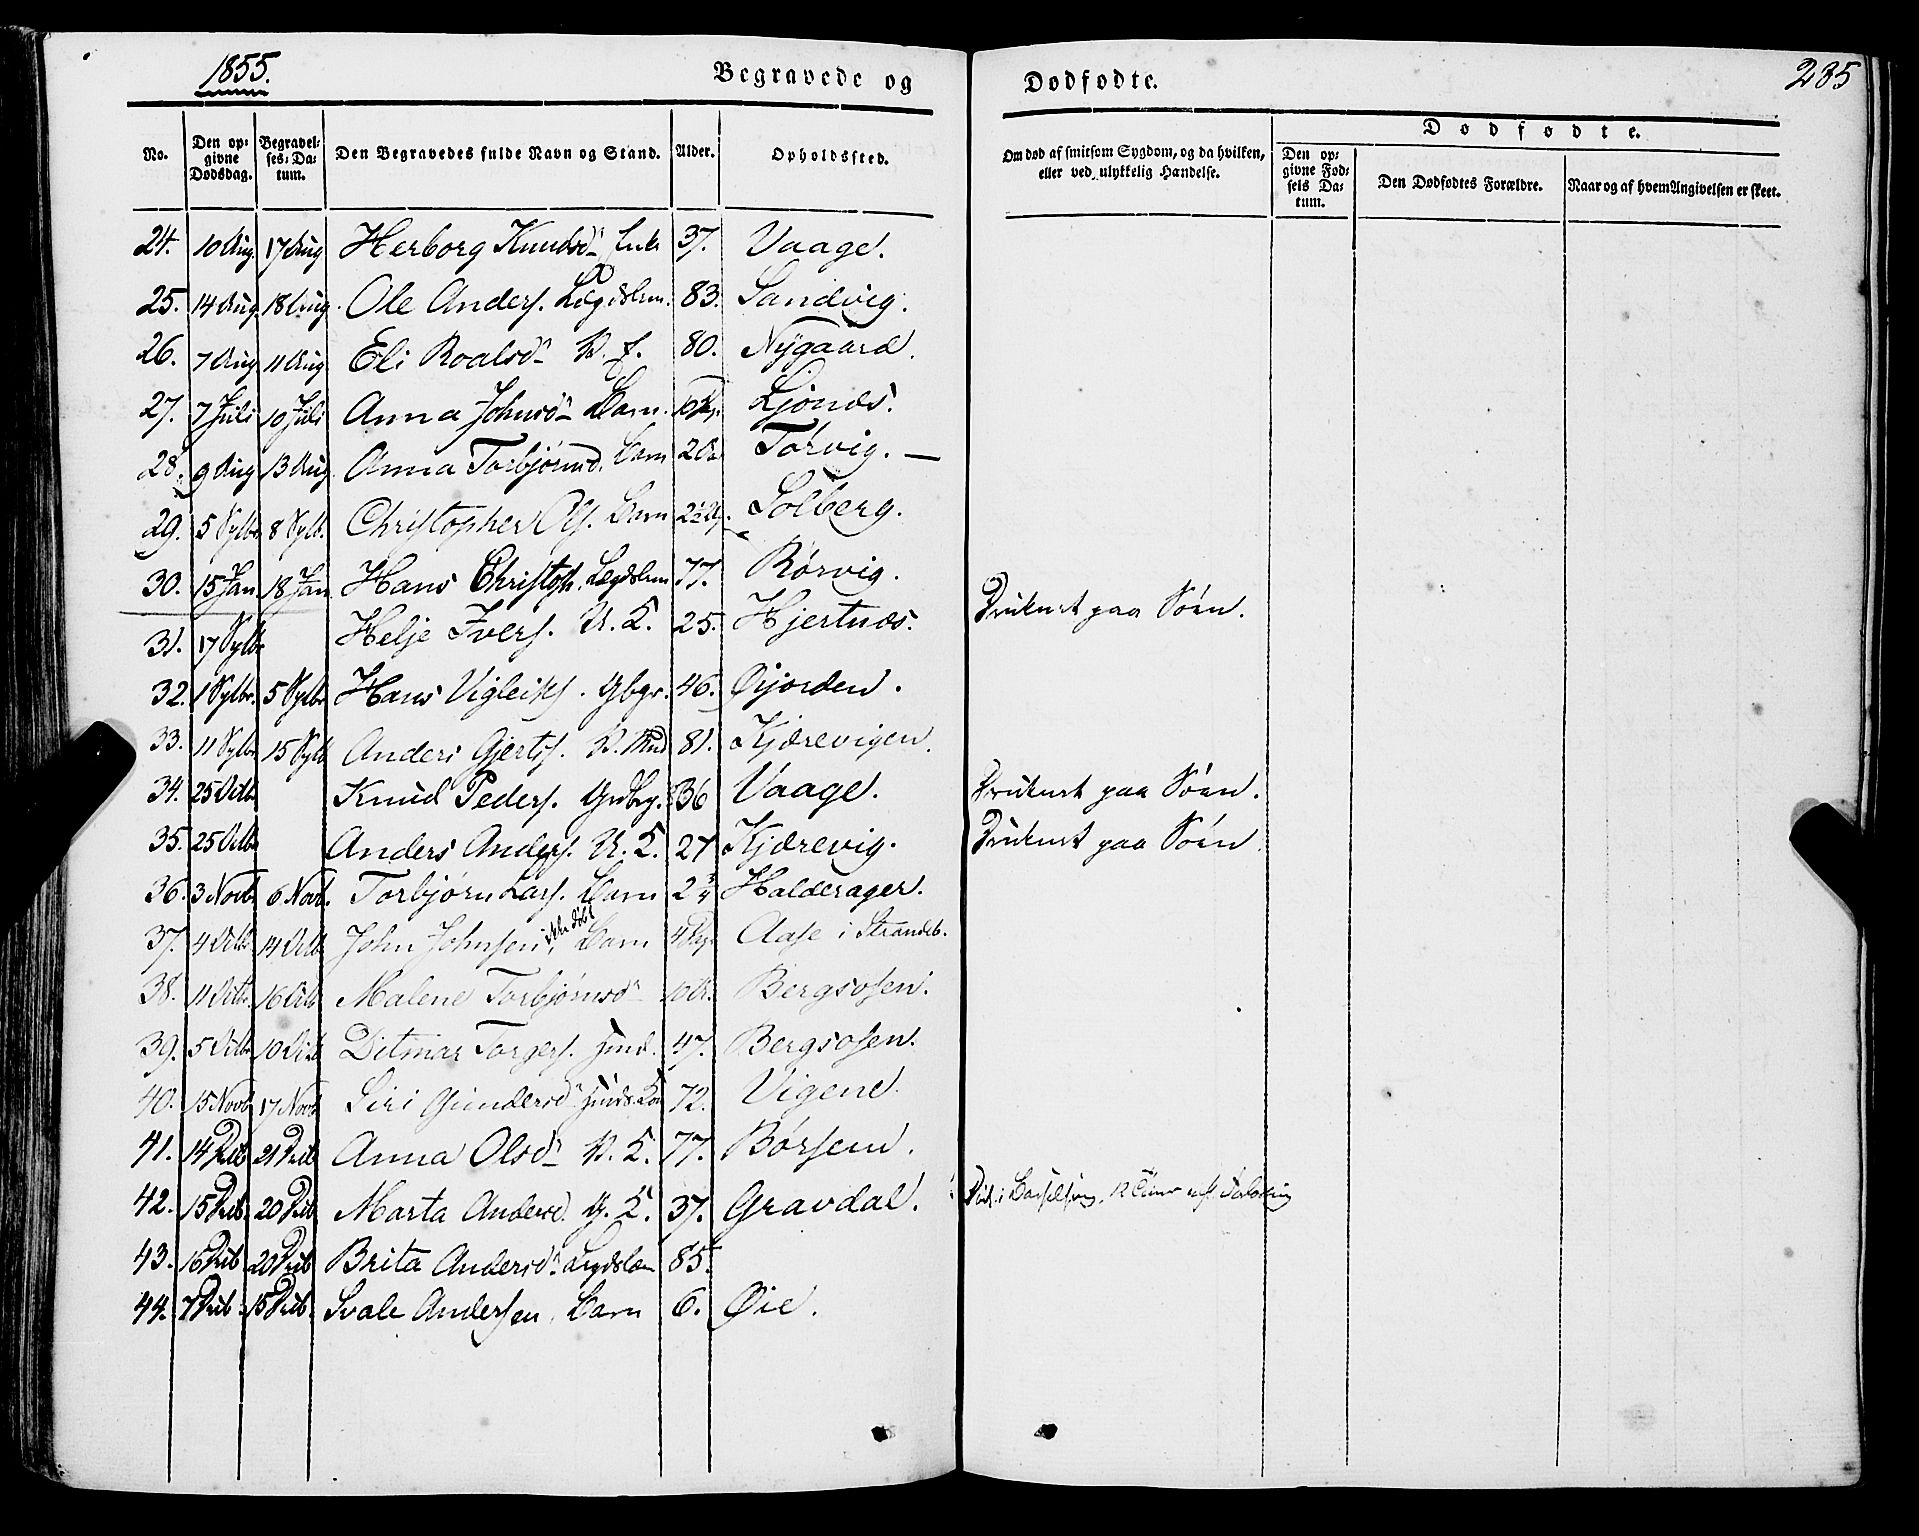 1855.
Begravede og
Dødfødte.
235
No.
Den opgivne Dødsdag.
Begravelses-Datum.
Den Begravedes fulde Navn og Stand.
Alder.
Opholdssted.
Om død af smitsom Sygdom, og da hvilken, eller ved ulykkelig Hændelse.
Dødfødte.
Den opgivne Fødsels Datum.
Den Dødfødtes Forældre.
Naar og af hvem Angivelsen er skeet.
24. 10 Aug 17 Aug Herborg Knudsd. Enke 37. Vaage.
25. 14 Aug. 18 Aug. Ole Anders. Lægdslem. 83. Sandvig.
26. 7 Aug 11 Aug Eli Roalsd. 80. Nygaard.
27. 7 Juli 10 Juli Anna Johnsd. Barn. Ljønes.
28. 9 Aug 13 Aug. Anna Torbjørnsd. Barn Tørvig. —
29. 5 Sptb 8 Sptb. Christopher Ols. Barn Solberg.
30. 15 Jan 18 Jan Hans Christoph. Lægdslem 77. Rørvig.
31. 17 Sptb. Helje Ivers. U. K. 25. Hjertnæs. Druknet paa Søen.
32. 1 Sptbr. 5 Sptbr Hans Vigleiks. Gbgr. 46. Øijorden.
33. 11 Sptbr. 15 Sptb Anders Gjerts. 81. Kjærevigen.
34. 25 Octb Knud Peders. Grdbrg. 36 Vaage. Druknet paa Søen.
35. 25 Octb Anders Anders. U. K. 27 Kjærevig. Druknet paa Søen.
36. 3 Novb. 6 Novb. Torbjørn Lars. Barn 2 3/4 Halderager.
37. 4 Octb 14 Octb John Johnsen, ikke døbt Barn Aase i Strandeb.
38. 11 Octb. 16 Octb Malene Torbjørnsd. Bergsosen.
39. 5 Octb 10 Octb Ditmar Torgers. Hmd. 47. Bergsosen.
40. 15 Novb 17 Novb Siri Gundersd. Hmds. Ko 72. Vigene.
41. 14 Decb 21 Decb Anna Olsd. K. 77. Børsem.
42. 15 Decb. 20 Decb Marta Andersd. G. K. 37. Gravdal. Død i Barselseng, 12 Timer eft. Forløsning
43. 16 Decb 20 Decb Brita Andersd. Lægdslem 85.
44. 7 Decb. 15 Decb. Svale Andersen, Barn 6. Øie.